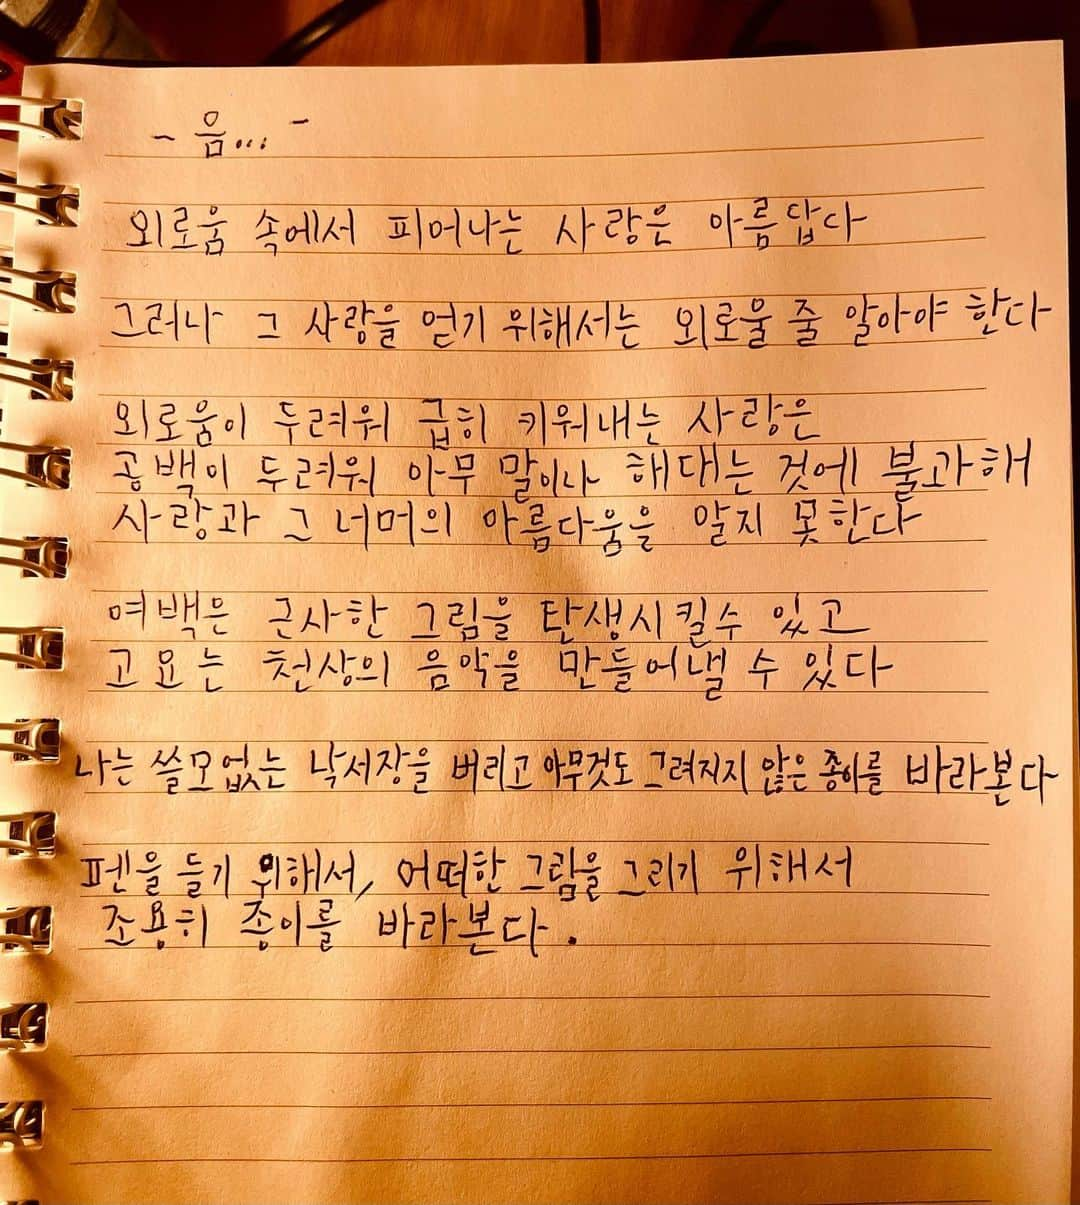 - 음... -
외로움 속에서 피어나는 사랑은 아름답다
그러나 그 사랑을 얻기 위해서는 외로울 줄 알아야 한다
외로움이 두려워 급히 키워내는 사랑은
공백이 두려워 아무 말이나 해대는 것에 불과해
사랑과 그 너머의 아름다움을 알지 못한다
여백은 근사한 그림을 탄생시킬수 있고
고요는 천상의 음악을 만들어낼 수 있다
나는 쓸모없는 낙서장을 버리고 아무것도 그려지지 않은 종이를 바라본다
펜을 들기 위해서, 어떠한 그림을 그리기 위해서
조용히 종이를 바라본다.